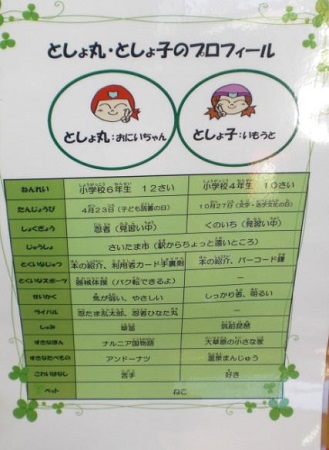 としょ丸・としょ子のプロフィール
としょ丸：おにいちゃん
としょ子：いもうと
ねんれい 小学校6年生 12さい 小学校4年生 10さい
たんじょうび 4月23日（子ども読書の日） 10月27日（文字・活字文化の日）
しょくぎょう 忍者（見習い中） くのいち（見習い中）
じゅうしょ さいたま市（駅からちょっと遠いところ）
とくいなじゅつ 本の紹介、利用者カード手裏剣 本の紹介、バーコード
とくいなスポーツ 器械体操（バク転できるよ） ー
せいかく 気が弱い、やさしい しっかり者、明るい
ライバル 忍たま乱太郎、忍者ひなた丸 ー
しゅみ
すきなほん ナルニア国物語 大草原の小さな家
すきなたべもの アンドーナツ 温泉まんじゅう
こわいはなし 苦手 好き
ペット ねこ